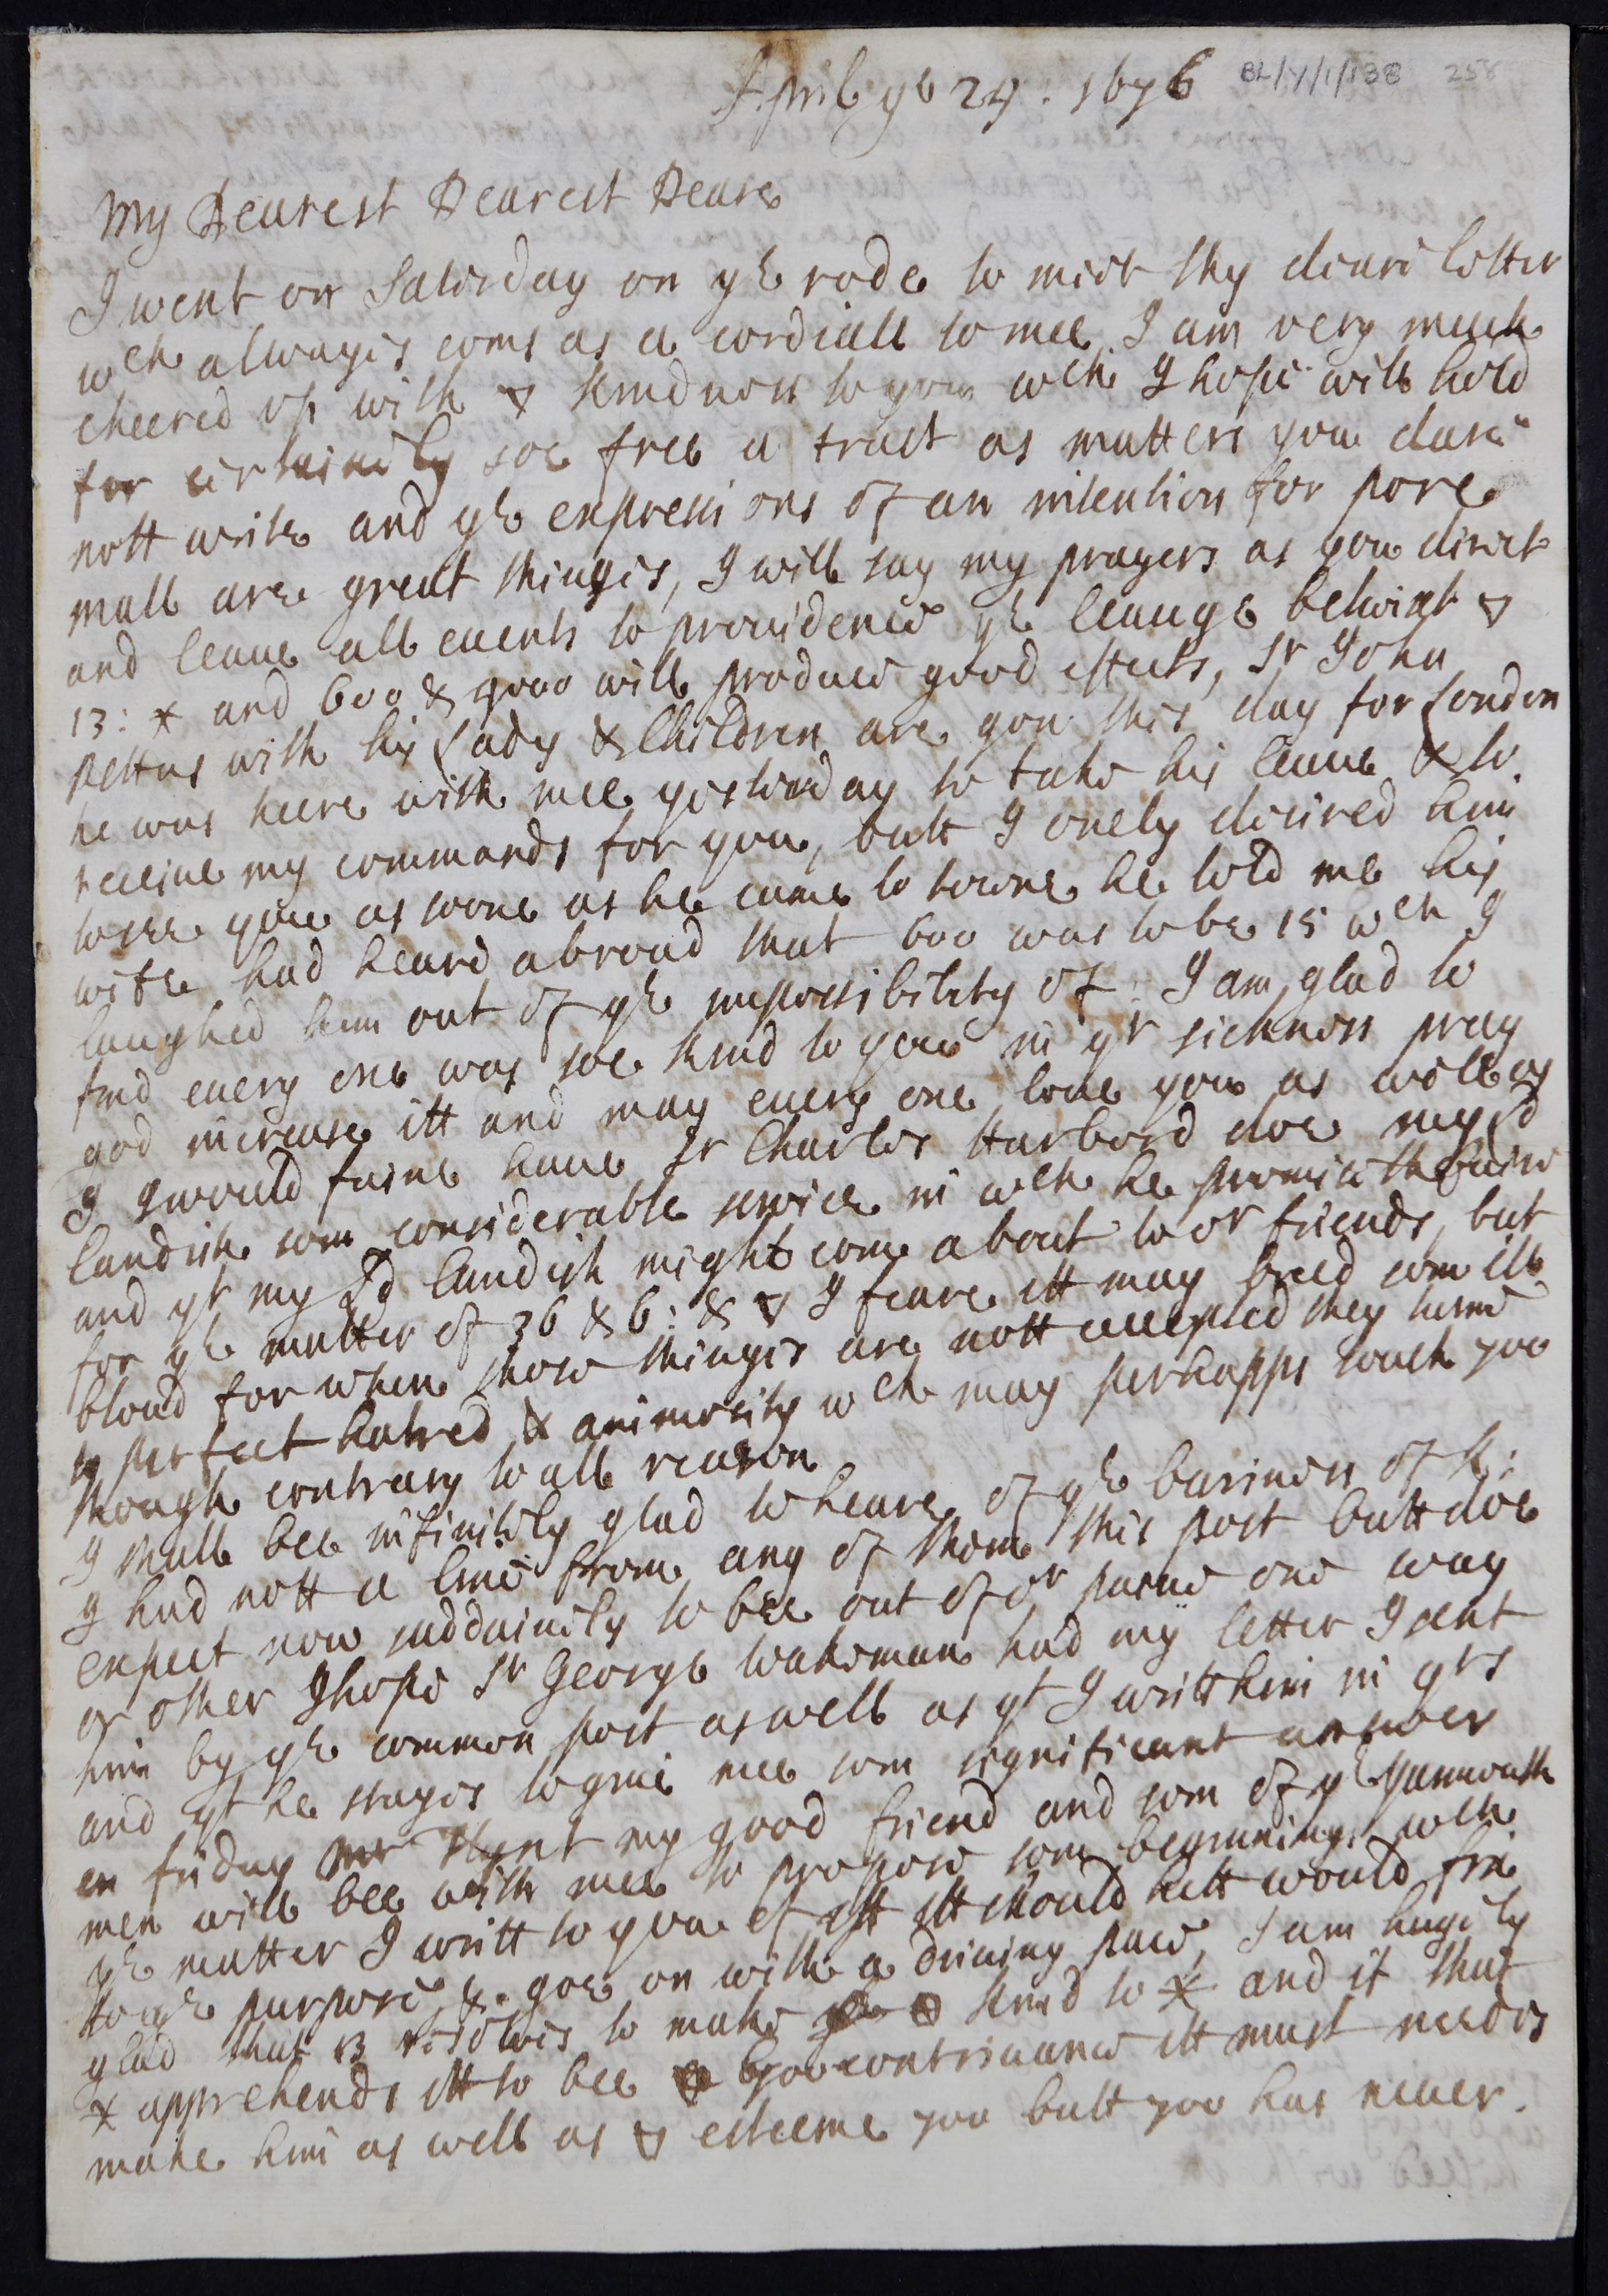 April ye 24: 1676 BL/Y/1/138 258
My Dearest Dearest Deare
I went on Saterday on ye rode to meet thy deare letter
wch alwayes coms as a cordiall to mee, I am very much
cheered vp with kindness to you wch I hope will hold
for certainely soe free a trust as matters you dare
nott write and ye expressions of an intention for pore
mall are great thinges, I will say my prayers as you direct
and leaue all euents to prouidence ye leauge betwixt
13: * and 600 & 4000 will produce good effects, Sr John
Pettus with his Lady & Children are gon this day for London
he was heere with mee yesterday to take his leaue & to
receiue my commands for you, butt I onely desired him
to see you as soone as he came to towne he told me his
wife had heard abroad that 600 was to be 15 wch I
laughed him out of ye impossibility of: I am glad to
find euery one was soe kind to you in yr sickness pray
god increase itt and may euery one loue you as well as
I I would faine haue Sr Charles Harbord doe my Ld
Candish som considerable seruice in wch he promise
and yt my Ld Candish might com about to or friends, but
for ye matter of 36 & 6: & I feare itt may breed som ill
bloud for when those thinges are nott accepted they turne
to perfect hatred & animosity wch may perhapps touch 700
though contrary to all reason
I shall bee infinitely glad to heare of ye business of K:
I had nott a line from any of them this post butt doe
expect now suddainely to bee out of or paine one way
or other I hope Sr George Wakeman had my letter I sent
him by ye common post as well as yt I writt him in yrs
and yt he stayes to giue mee som significant answer
on friday mr Thynt my good friend and som of ye yarmouth
men will bee with mee to propose som beginnings wch
ye matter I writt to you of itt should hitt would fix
to ye purpose, & goe on with a driuing pace, I am hugely
glad that 13 resolues to make kind to * and if that
* apprehends itt to bee 700 contriuance itt must needes
make him as well as esteeme 700 butt 700 has neuer.